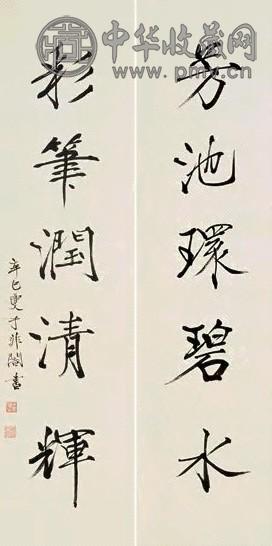 中华收藏网
芳池環碧水
彩筆潤清輝
辛巳夏于非闇書